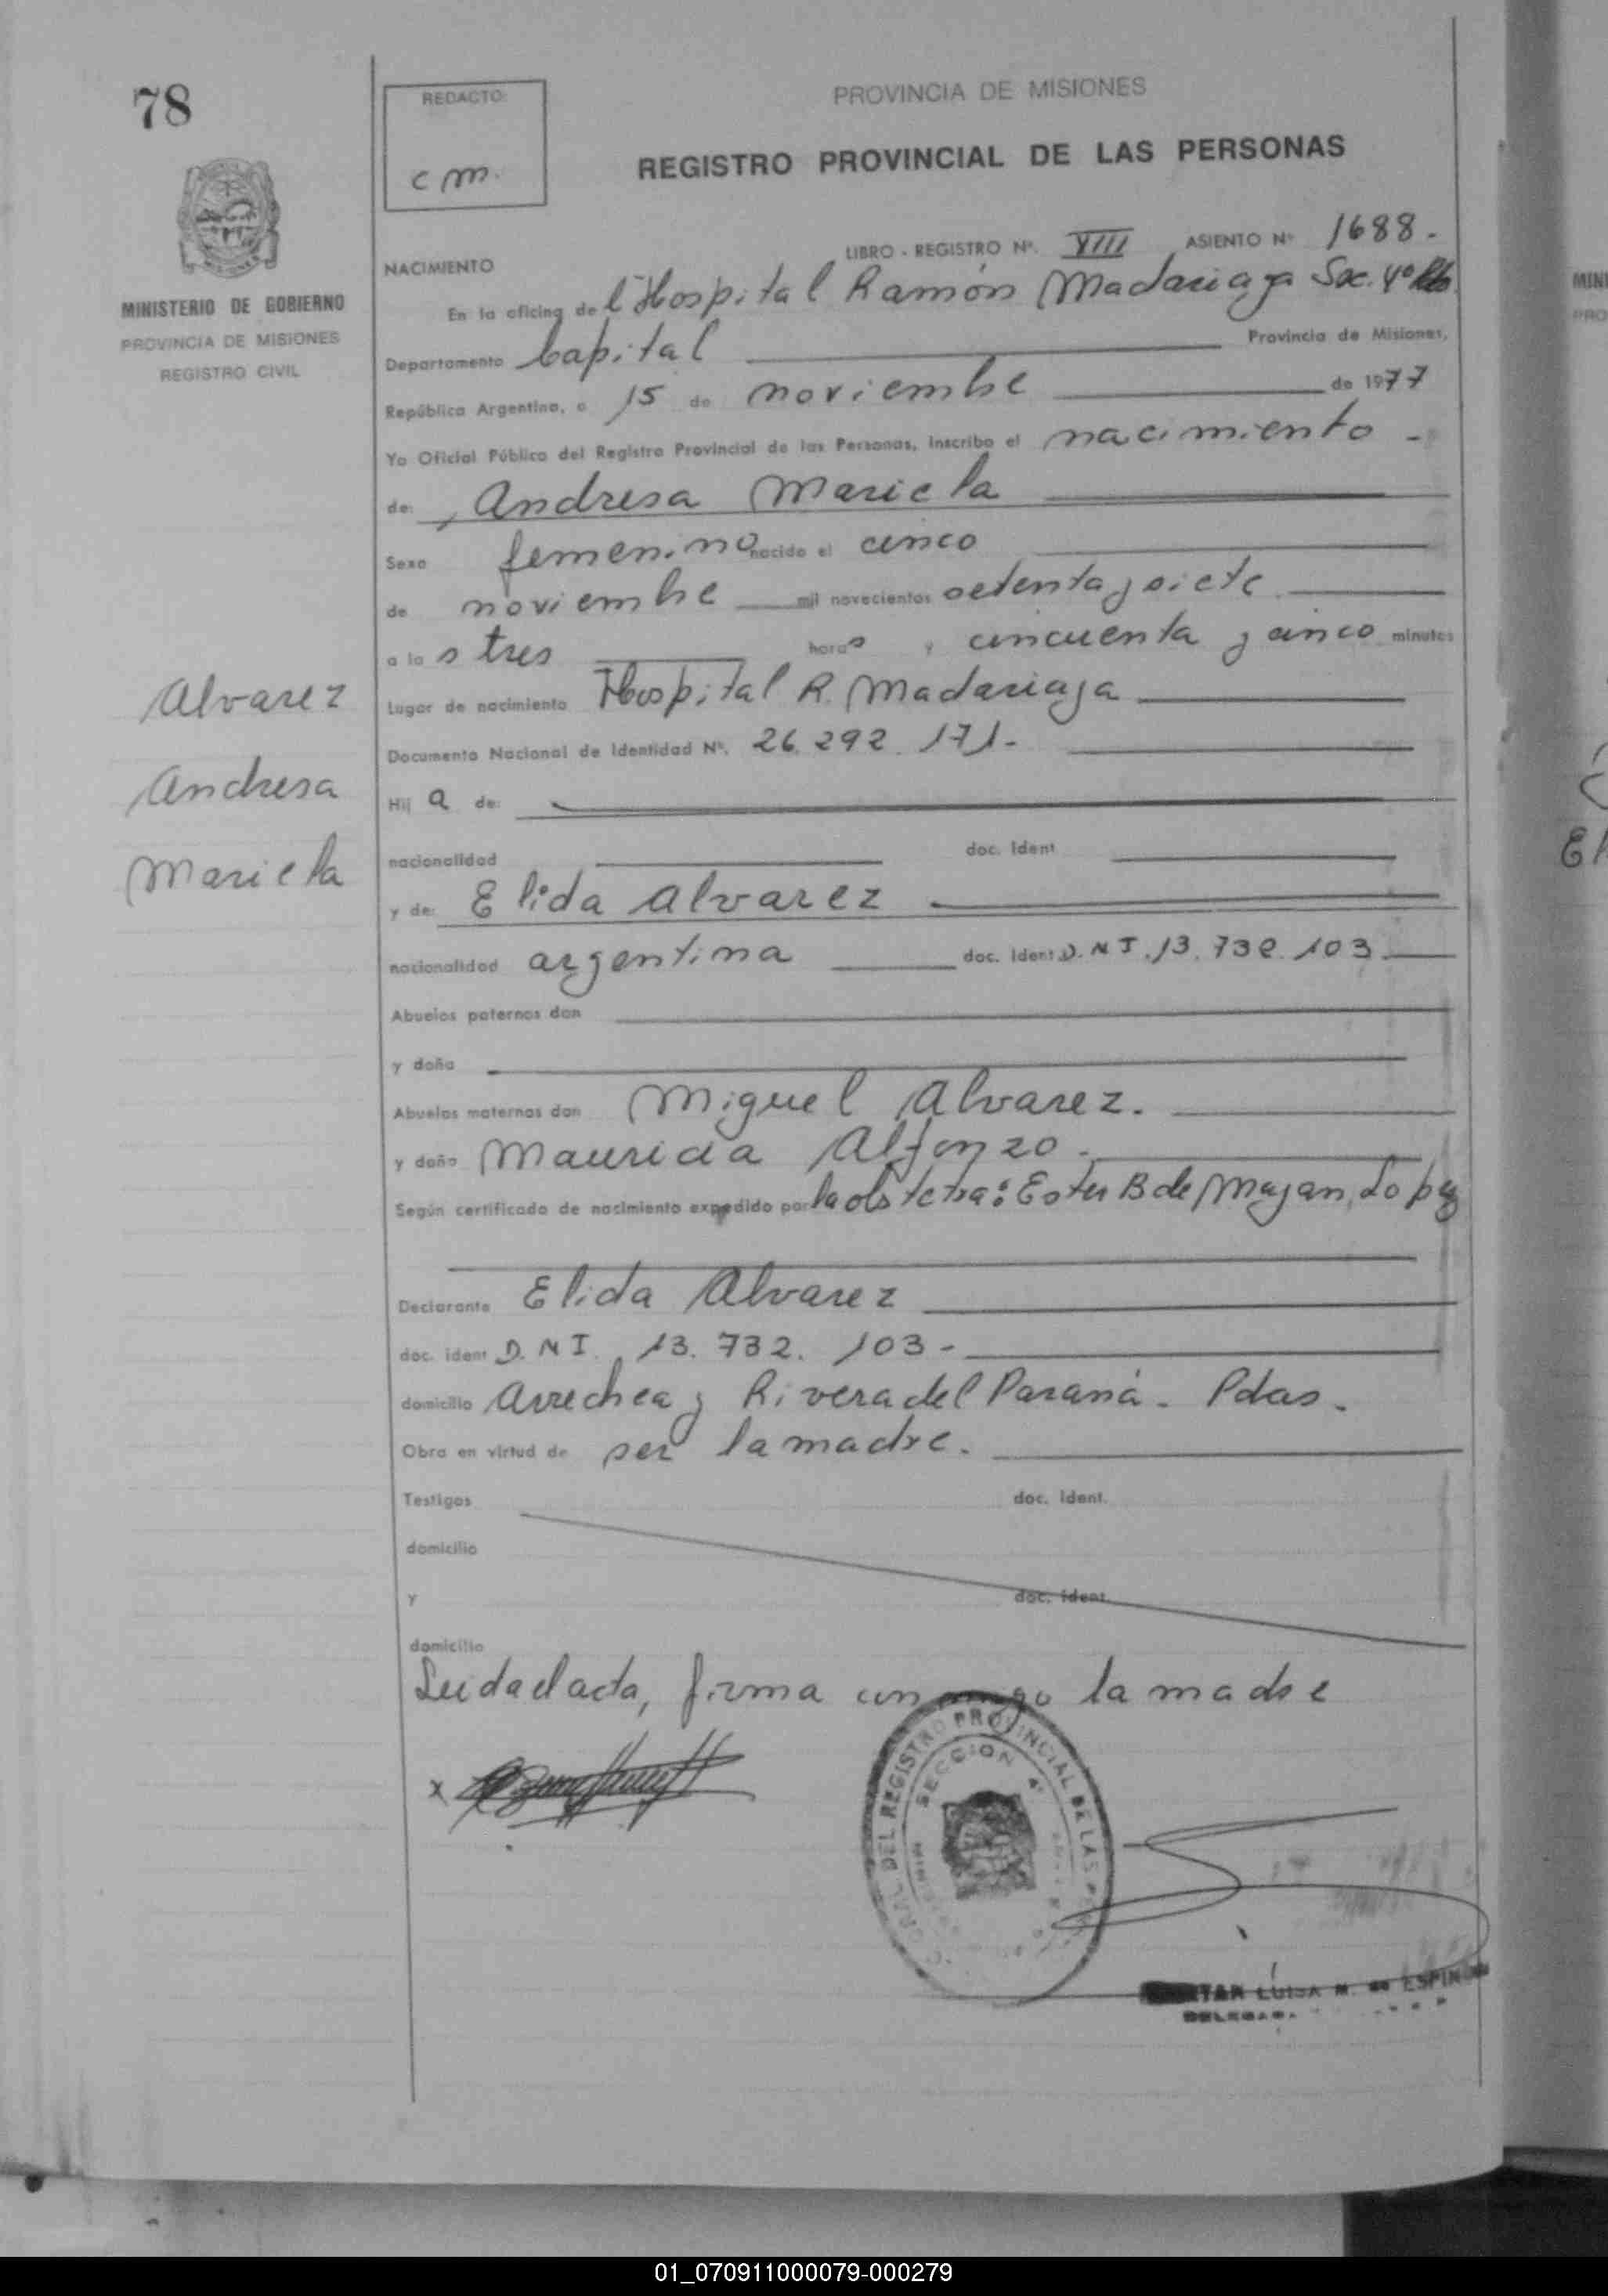 78
REDACTO:
c m.
PROVINCIA DE MISIONES
REGISTRO PROVINCIAL DE LAS PERSONAS
MINISTERIO DE GOBIERNO
PROVINCIA DE MISIONES
REGISTRO CIVIL
NACIMIENTO
LIBRO - REGISTRO Nº. VIII ASIENTO Nº 1688.-
En la oficina del Hospital Ramón Madariaga Sec. 4º
Departamento Capital Provincia de Misiones,
República Argentina, a 15 de noviembre de 1977
Yo Oficial Público del Registro Provincial de las Personas, inscribo el nacimiento -
de: Andresa Mariela
Sexo femenino nacido el cinco
de noviembre mil novecientos setenta y siete
a las tres horas y cincuenta y cinco minutos
Lugar de nacimiento Hospital R. Madariaga
Documento Nacional de Identidad Nº. 26.292.171.-
Alvarez
Andresa
Mariela
Hija de:
nacionalidad doc. Ident
y de: Elida Alvarez
nacionalidad argentina doc. Ident D.N I. 13.732.103
Abuelos paternos don
y doña
Abuelos maternos don Miguel Alvarez.
y doña Mauricia Alfonzo.
Según certificado de nacimiento expedido por la obstetra: Ester B de Mayan, Lopez
Declarante Elida Alvarez
doc. ident D. N I. 13.732.103-
domicilio Arrechea y Rivera del Paraná. Pdas.
Obra en virtud de ser la madre.
Testigos doc. Ident.
domicilio
y doc. Ident.
domicilio
Leida el acta, firma conmigo la madre
x
DEL REGISTRO PROVINCIAL DE LAS
SECCION 4º
LUISA M. de ESPIN
DELEGADA
MINI
PRO
El
01_070911000079-000279